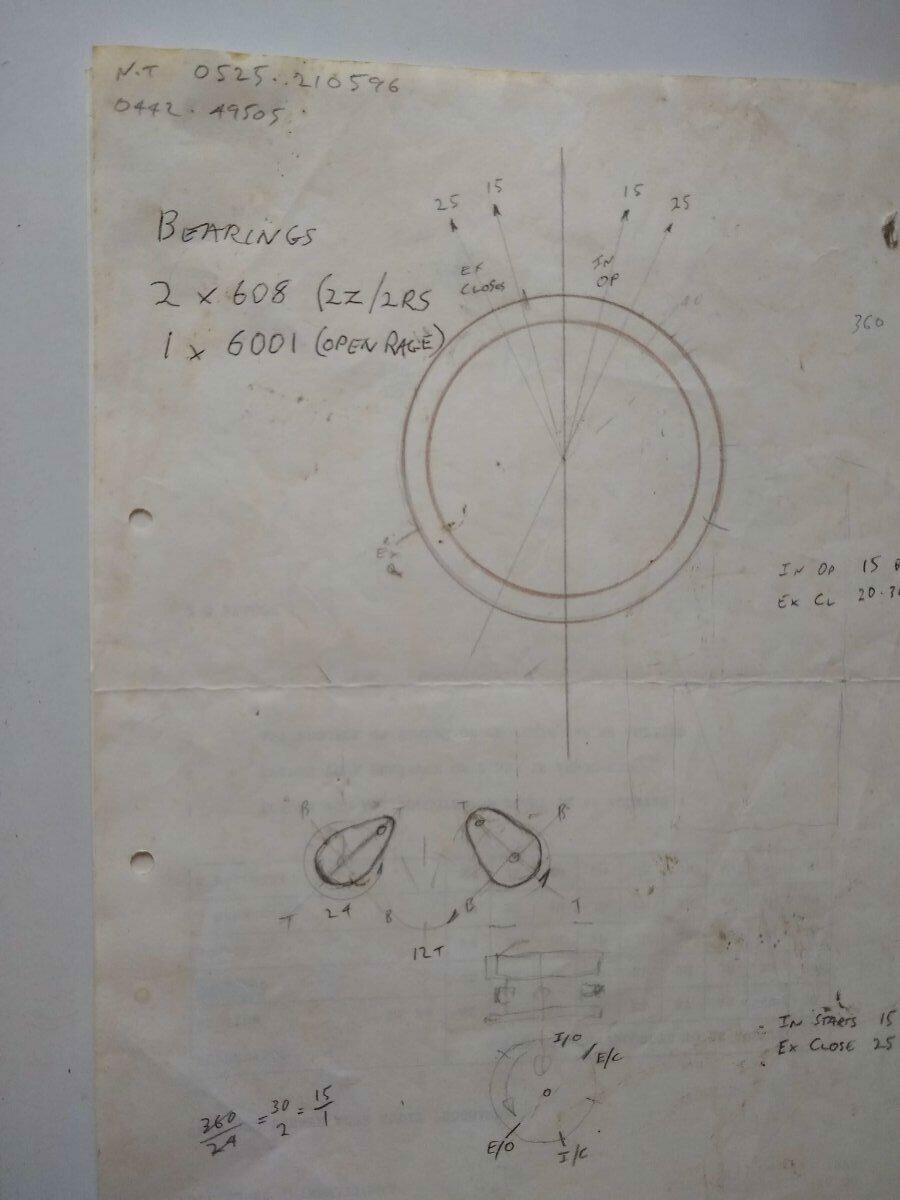 N.T 0525.210596
0442.49505
25 15 15 25
BEARINGS
EX
CLOSES
IN
OP
2 x 608 (2Z/2RS
40
360
1 x 6001 (OPEN RAGE)
EX
P
IN OP 15
EX CL 20.30
B T T B
T 24 B B T
12T
IN STARTS 15
EX CLOSE 25
I/O
E/C
360/24 = 30/2 = 15/1
E/O
I/C